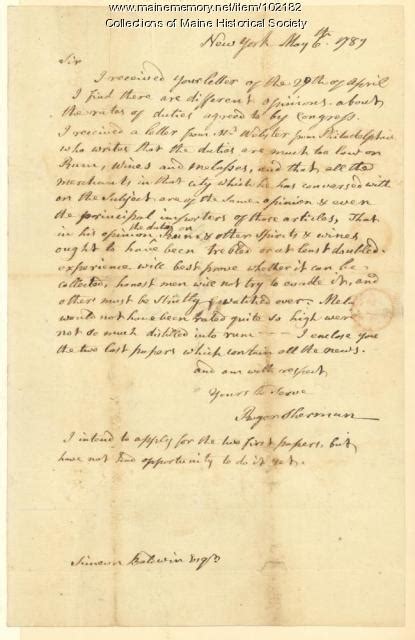 www.mainememory.net/item/102182
Collections of Maine Historical Society
New York May 6th. 1789
Sir
I received your letter of the 29th of April
I find there are different opinions about
the rates of duties agreed to by Congress.
I received a letter from Mr. Webster from Philadelphia
who writes that the duties are much too low on
Rum, Wines and melasses, and that all the
merchants in that city which he has conversed with
on the Subject are of the Same opinion & even
the principal importers of those articles, That
in his opinion the duties on Rum & other Spirits & wines
ought to have been trebled or at least doubled.
experience will best prove whether it can be
collected, honest men will not try to evade it, and
others must be Strictly watched over - Mela
would not have been rated quite so high were
not so much distilled into rum - - - I enclose you
the two last papers which contain all the news.
and am with respect
Yours to Serve
Roger Sherman
I intend to apply for the two first papers, but
have not had opportunity to do it yet.
Simeon Baldwin Esqr